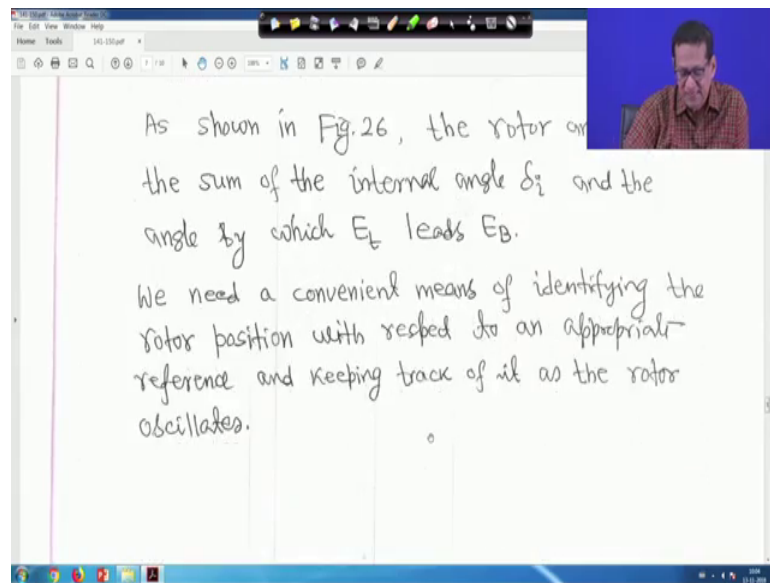 141-150.pdf - Adobe Acrobat Reader DC
File Edit View Window Help
Home Tools 141-150.pdf ×
As shown in Fig. 26, the rotor an
the sum of the internal angle δi and the
angle by which Et leads EB.
We need a convenient means of identifying the
rotor position with respect to an appropriate
reference and keeping track of it as the rotor
oscillates.